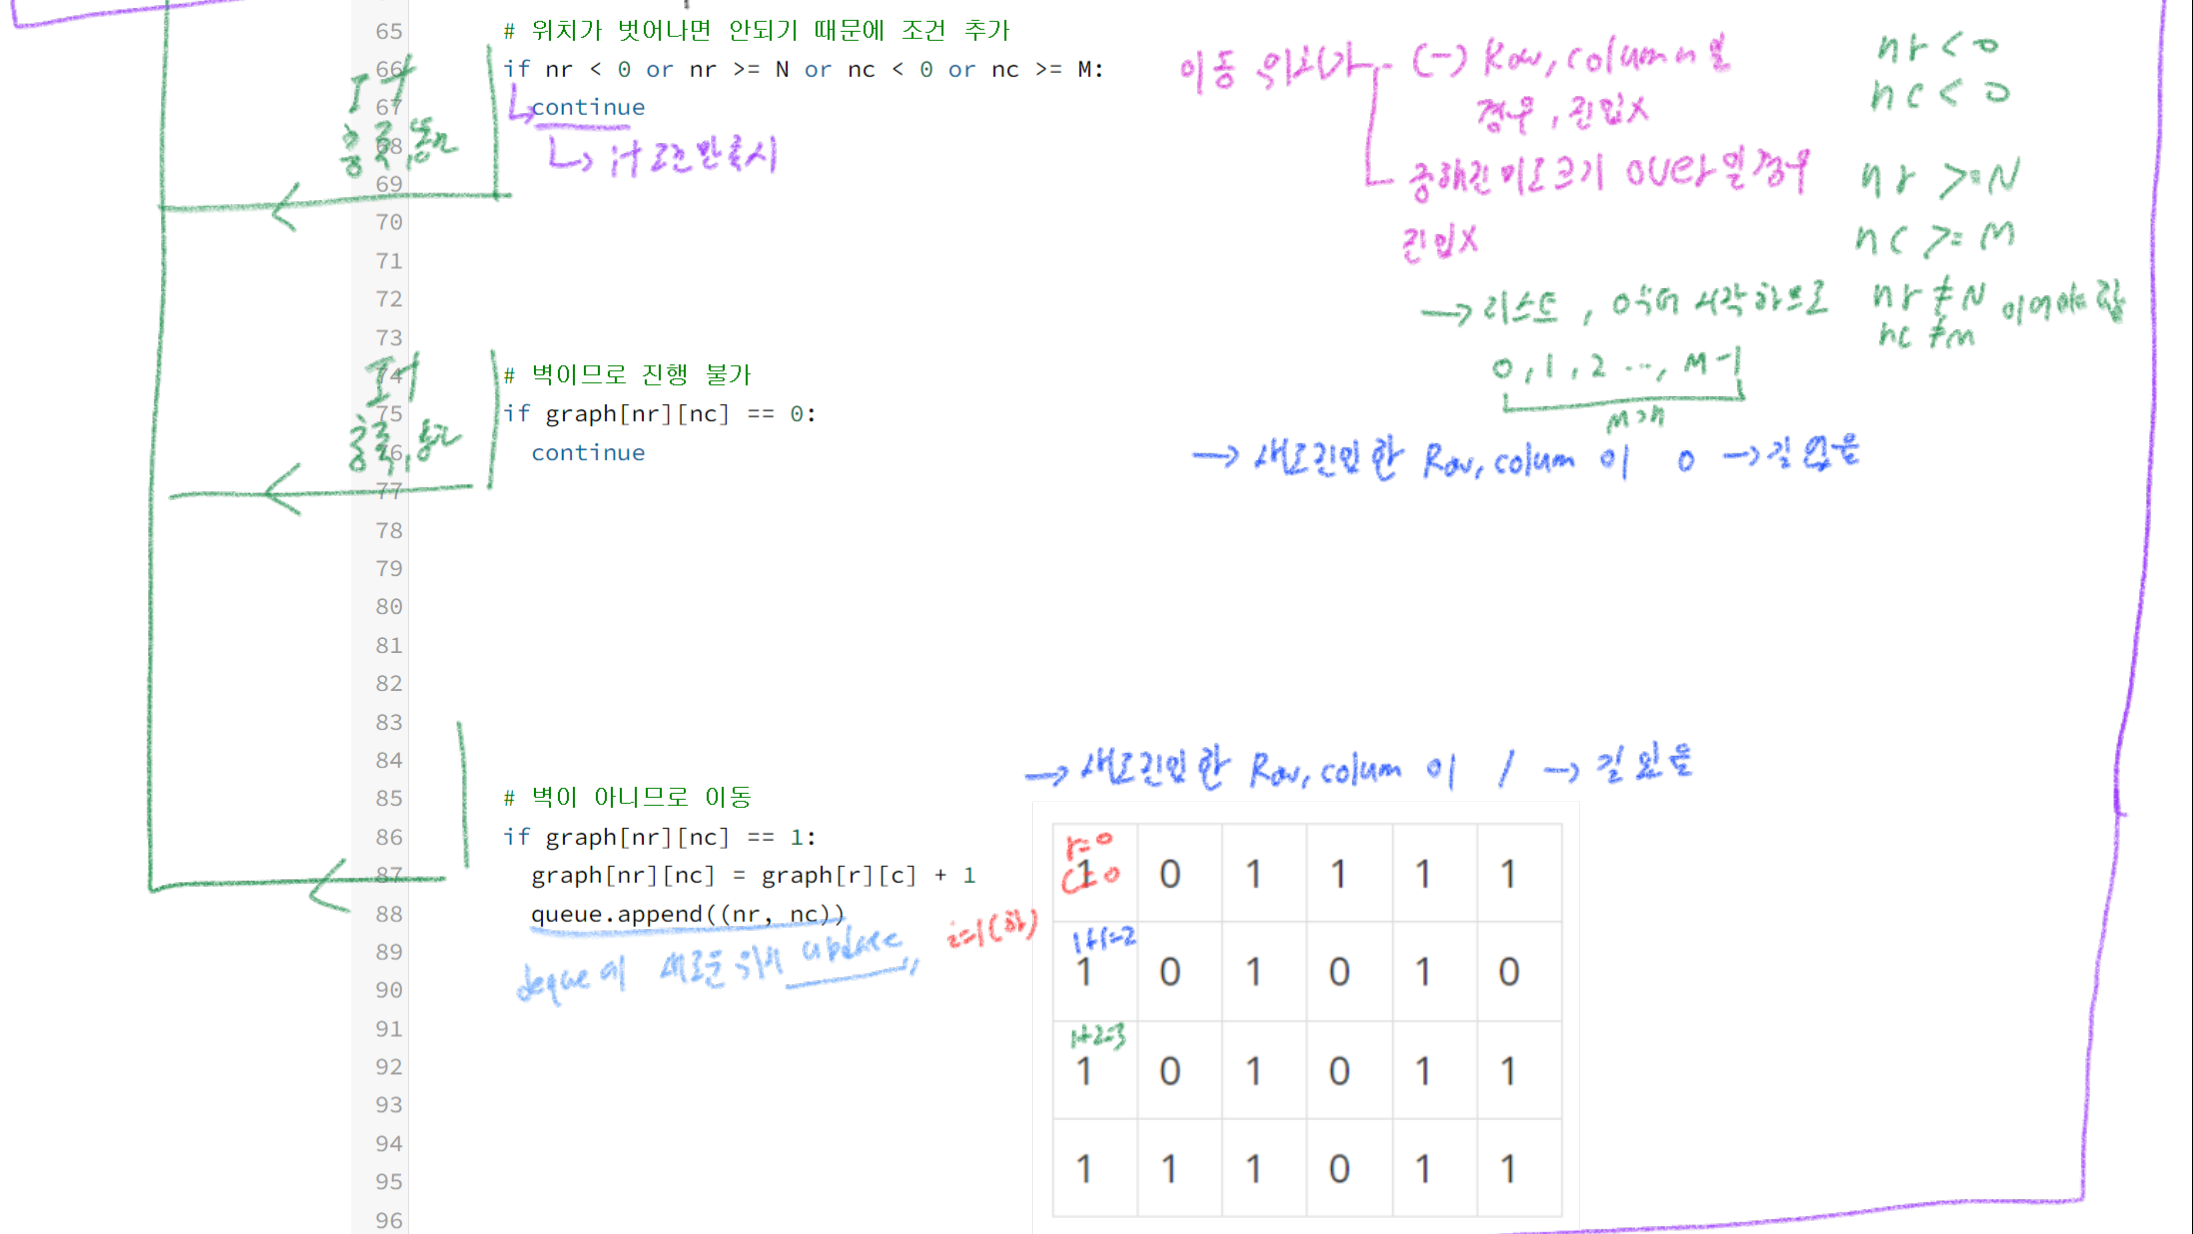 65 # 위치가 벗어나면 안되기 때문에 조건 추가
66 if nr < 0 or nr >= N or nc < 0 or nc >= M:
67 continue
68
69
70
71
72
73
74 # 벽이므로 진행 불가
75 if graph[nr][nc] == 0:
76 continue
77
78
79
80
81
82
83
84
85 # 벽이 아니므로 이동
86 if graph[nr][nc] == 1:
87 graph[nr][nc] = graph[r][c] + 1
88 queue.append((nr, nc))
89
90
91
92
93
94
95
96
If
If
이동 위치가
(-) Row, column일
경우, 진입X
정해진 미로크기 over일 경우
진입X
nr < 0
nc < 0
nr >= N
nc >= M
→ 리스트, 0부터 시작하므로 nr ≠ N 이어야 함
nc ≠ m
0, 1, 2 ..., M-1
M개
→ 새로진입한 Row, colum 이 0 → 길 없음
→ 새로진입한 Row, colum 이 1 → 길 있음
deque에 새로운 위치 update
i=1(하)
r=0
c=0
1 0 1 1 1 1
1+1=2
1 0 1 0 1 0
1+2=3
1 0 1 0 1 1
1 1 1 0 1 1